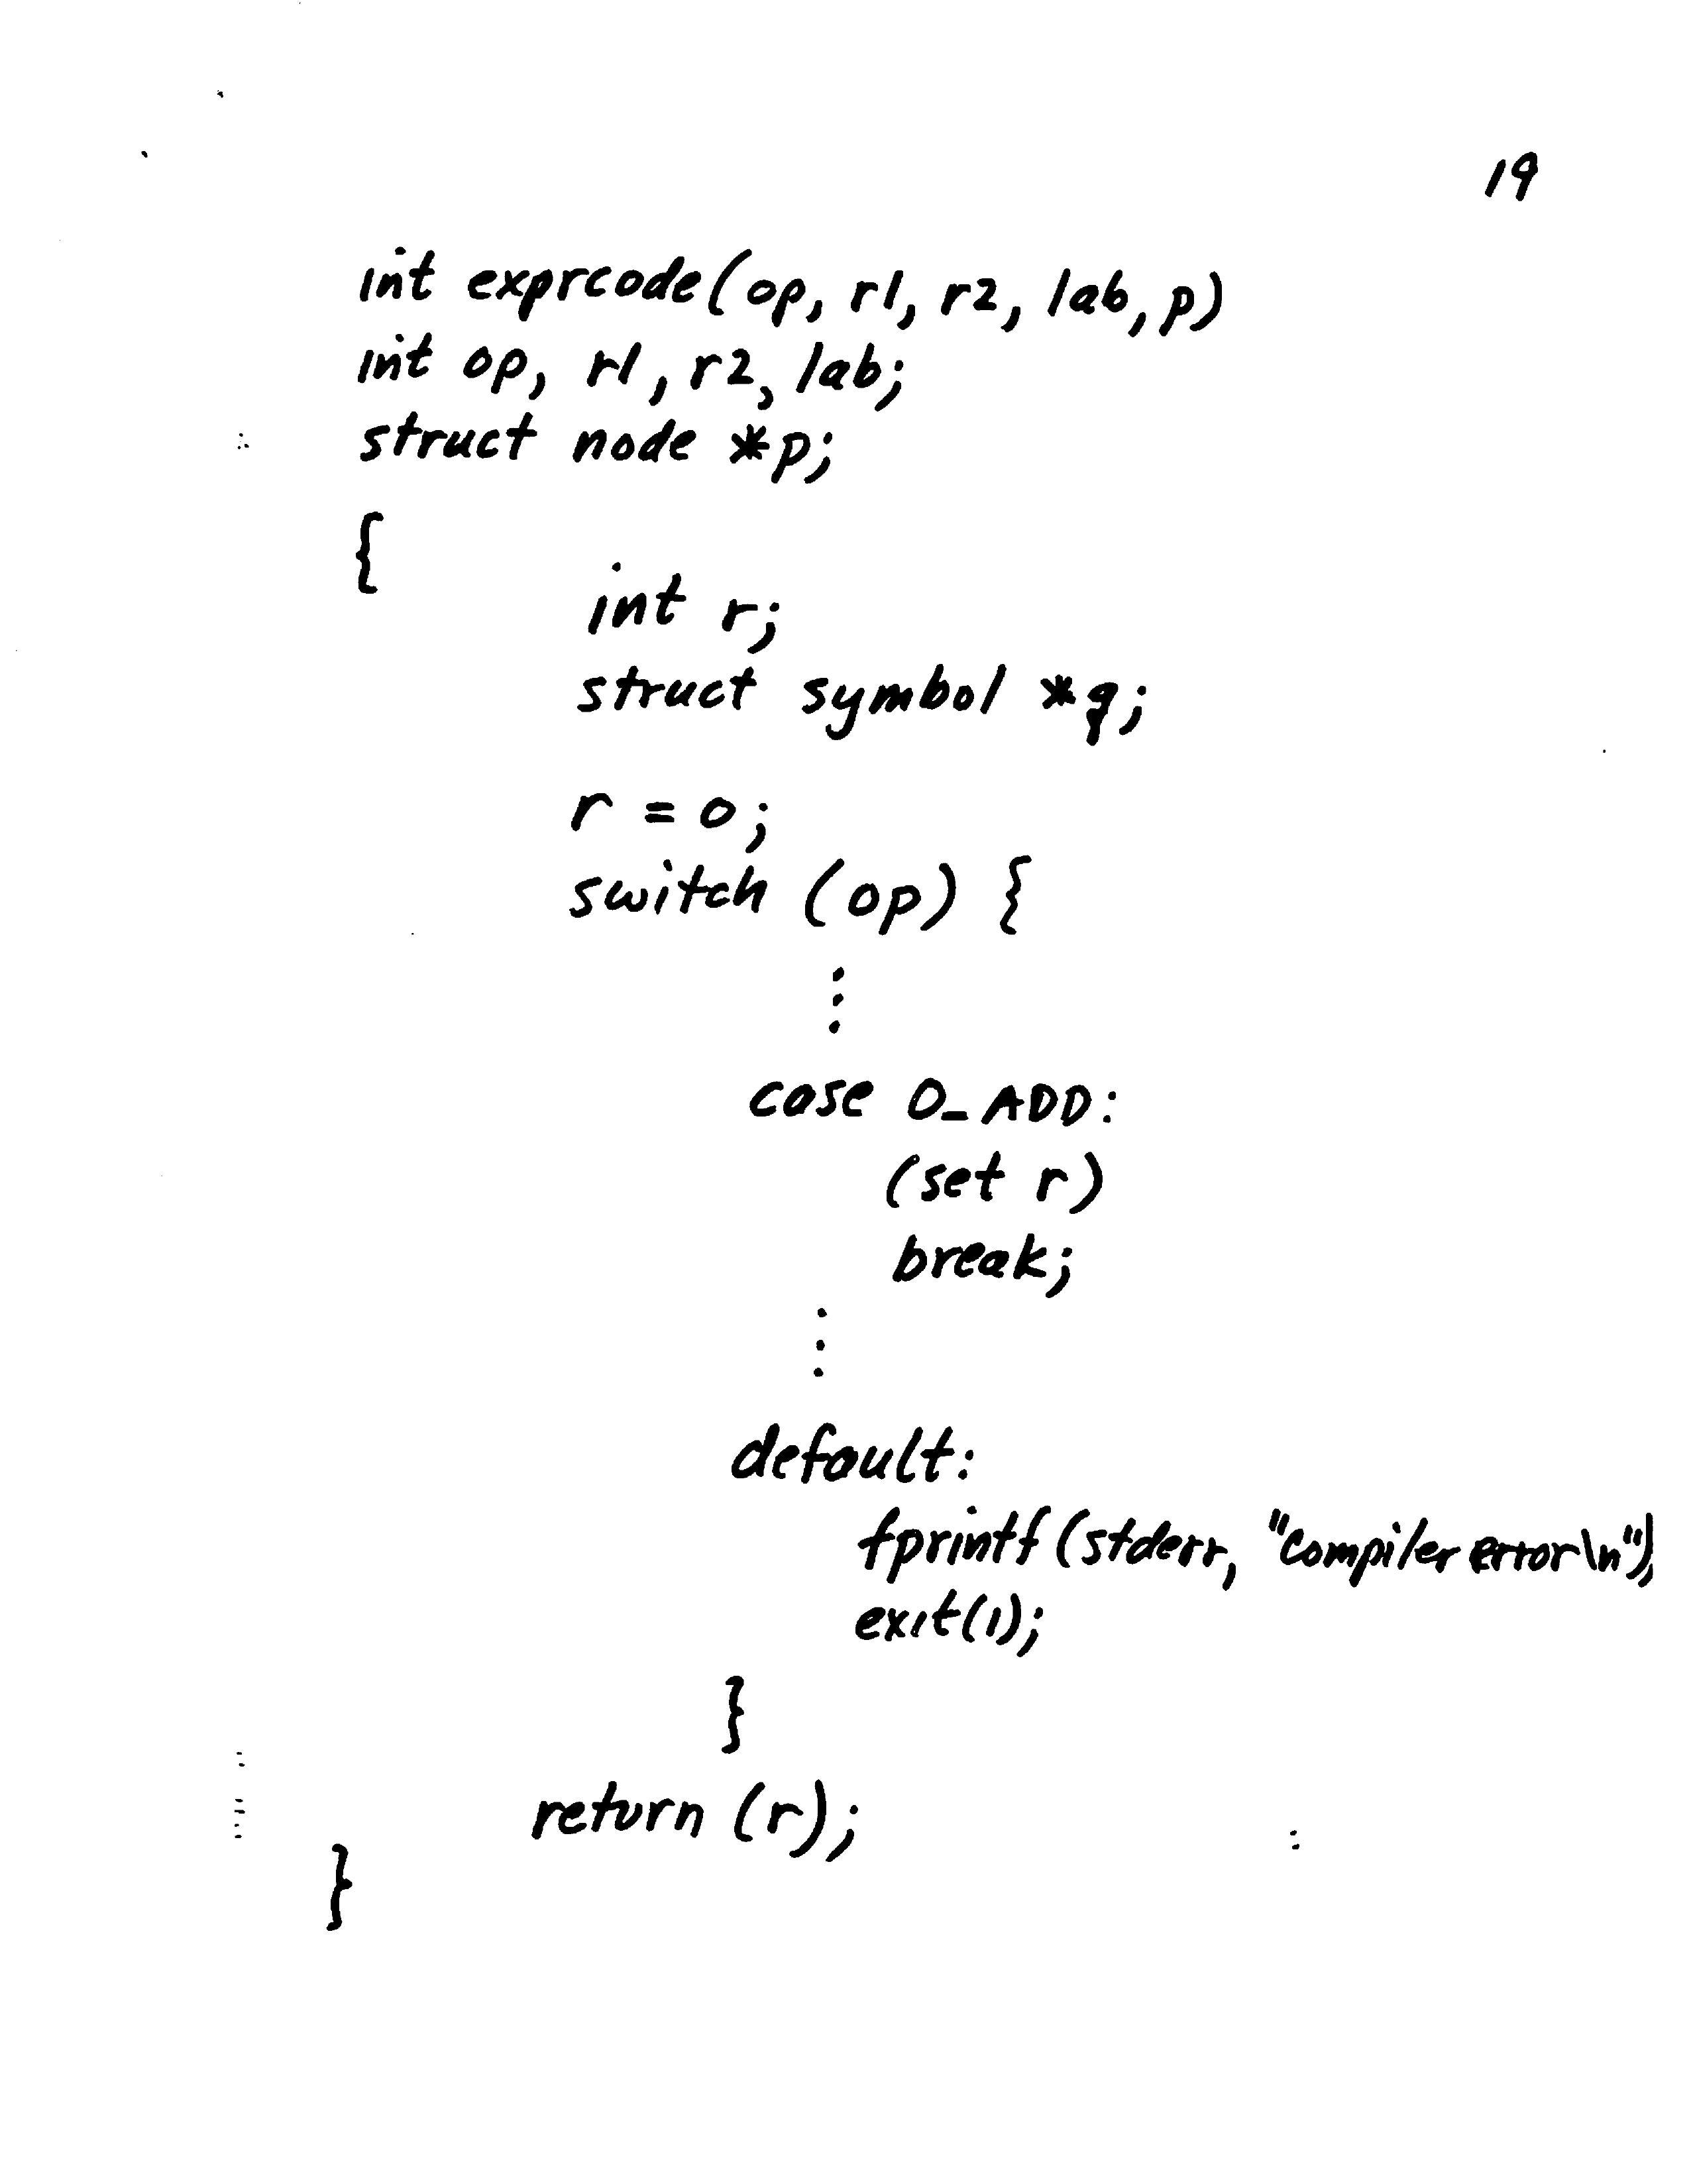 19
int exprcode(op, r1, r2, lab, p)
int op, r1, r2, lab;
struct node *p;
{
int r;
struct symbol *q;
r = 0;
switch (op) {
⋮
case O_ADD:
(set r)
break;
⋮
default:
fprintf(stderr, "Compiler error\n");
exit(1);
}
return (r);
}